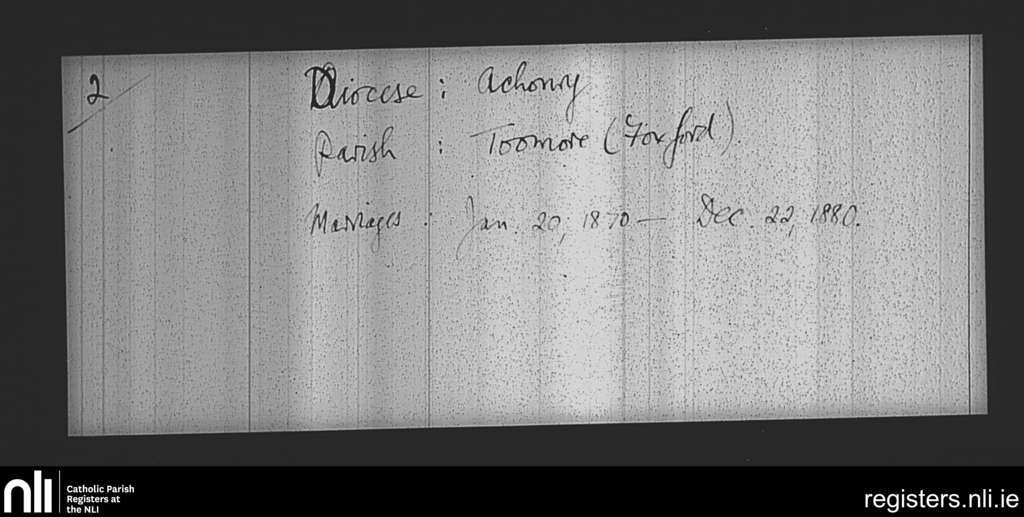 2
Diocese : Achonry
Parish : Toomore (Foxford).
Marriages : Jan. 20, 1870 – Dec. 22, 1880.
nli
Catholic Parish
Registers at
the NLI
registers.nli.ie